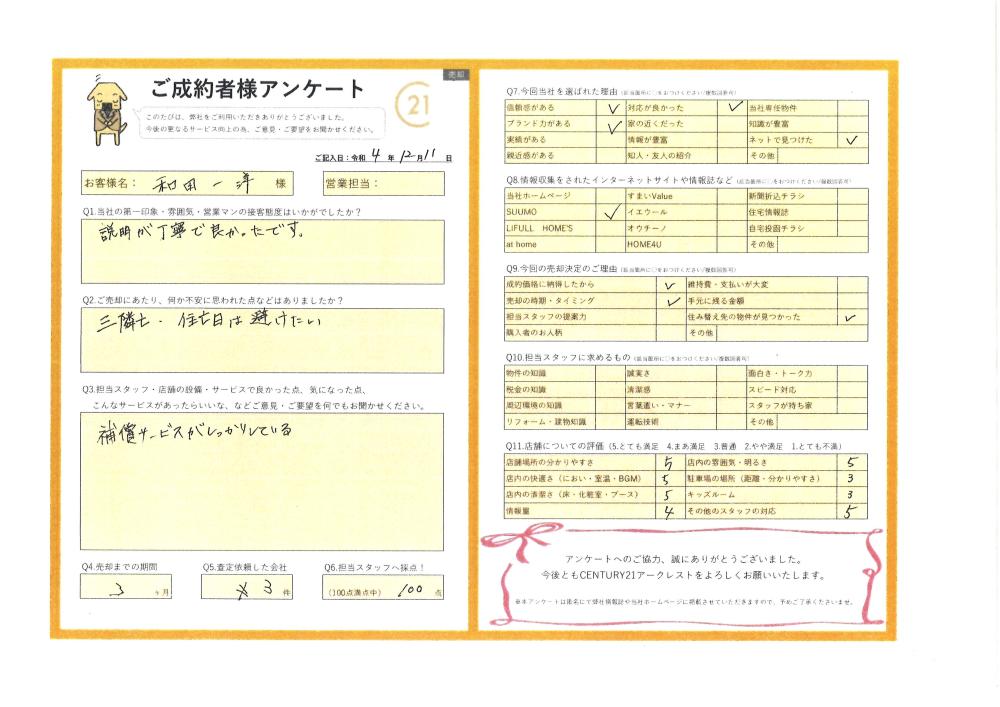 売却
ご成約者様アンケート
21
このたびは、弊社をご利用いただきありがとうございました。
今後の更なるサービス向上の為、ご意見・ご要望をお聞かせください。
ご記入日：令和 4 年 12 月 11 日
お客様名： 和田 一洋 様 営業担当：
Q1.当社の第一印象・雰囲気・営業マンの接客態度はいかがでしたか？
説明が丁寧で良かったです。
Q2.ご売却にあたり、何か不安に思われた点などはありましたか？
三隣亡・仏滅日は避けたい
Q3.担当スタッフ・店舗の設備・サービスで良かった点、気になった点、
こんなサービスがあったらいいな、などご意見・ご要望を何でもお聞かせください。
補償サービスがしっかりしている
Q4.売却までの期間 Q5.査定依頼した会社 Q6.担当スタッフへ採点！
3 ヶ月 3 件 (100点満点中) 100 点
Q7.今回当社を選ばれた理由（該当箇所に○をおつけください/複数回答可）
信頼感がある ✓ 対応が良かった ✓ 当社専任物件
ブランド力がある ✓ 家の近くだった 知識が豊富
実績がある 情報が豊富 ネットで見つけた ✓
親近感がある 知人・友人の紹介 その他
Q8.情報収集をされたインターネットサイトや情報誌など（該当箇所に○をおつけください/複数回答可）
当社ホームページ すまいValue 新聞折込チラシ
SUUMO ✓ イエウール 住宅情報誌
LIFULL HOME'S オウチーノ 自宅投函チラシ
at home HOME4U その他
Q9.今回の売却決定のご理由（該当箇所に○をおつけください/複数回答可）
成約価格に納得したから ✓ 維持費・支払いが大変
売却の時期・タイミング ✓ 手元に残る金額
担当スタッフの提案力 住み替え先の物件が見つかった ✓
購入者のお人柄 その他
Q10.担当スタッフに求めるもの（該当箇所に○をおつけください/複数回答可）
物件の知識 誠実さ 面白さ・トーク力
税金の知識 清潔感 スピード対応
周辺環境の知識 言葉遣い・マナー スタッフが持ち家
リフォーム・建物知識 運転技術 その他
Q11.店舗についての評価（5.とても満足 4.まあ満足 3.普通 2.やや満足 1.とても不満）
店舗場所の分かりやすさ 5 店内の雰囲気・明るさ 5
店内の快適さ（におい・室温・BGM） 5 駐車場の場所（距離・分かりやすさ） 3
店内の清潔さ（床・化粧室・ブース） 5 キッズルーム 3
情報量 4 その他のスタッフの対応 5
アンケートへのご協力、誠にありがとうございました。
今後ともCENTURY21アークレストをよろしくお願いいたします。
※本アンケートは匿名にて弊社情報誌や当社ホームページに掲載させていただきますので、予めご了承くださいませ。